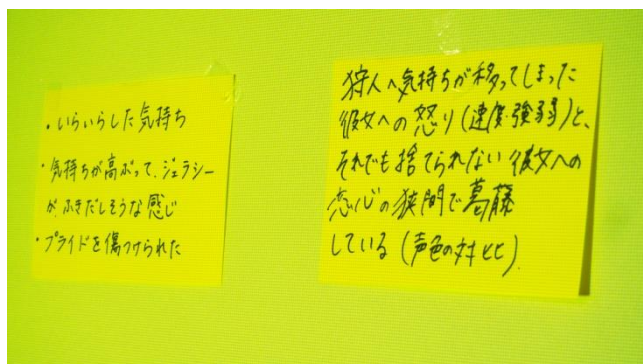 ・いらいらした気持ち
・気持ちが高ぶって、ジェラシー
がふきだしそうな感じ
・プライドを傷つけられた
狩人へ気持ちが移ってしまった
彼女への怒り(速度・強弱)と、
それでも捨てられない彼女への
恋心の狭間で葛藤
している(声色の対比)